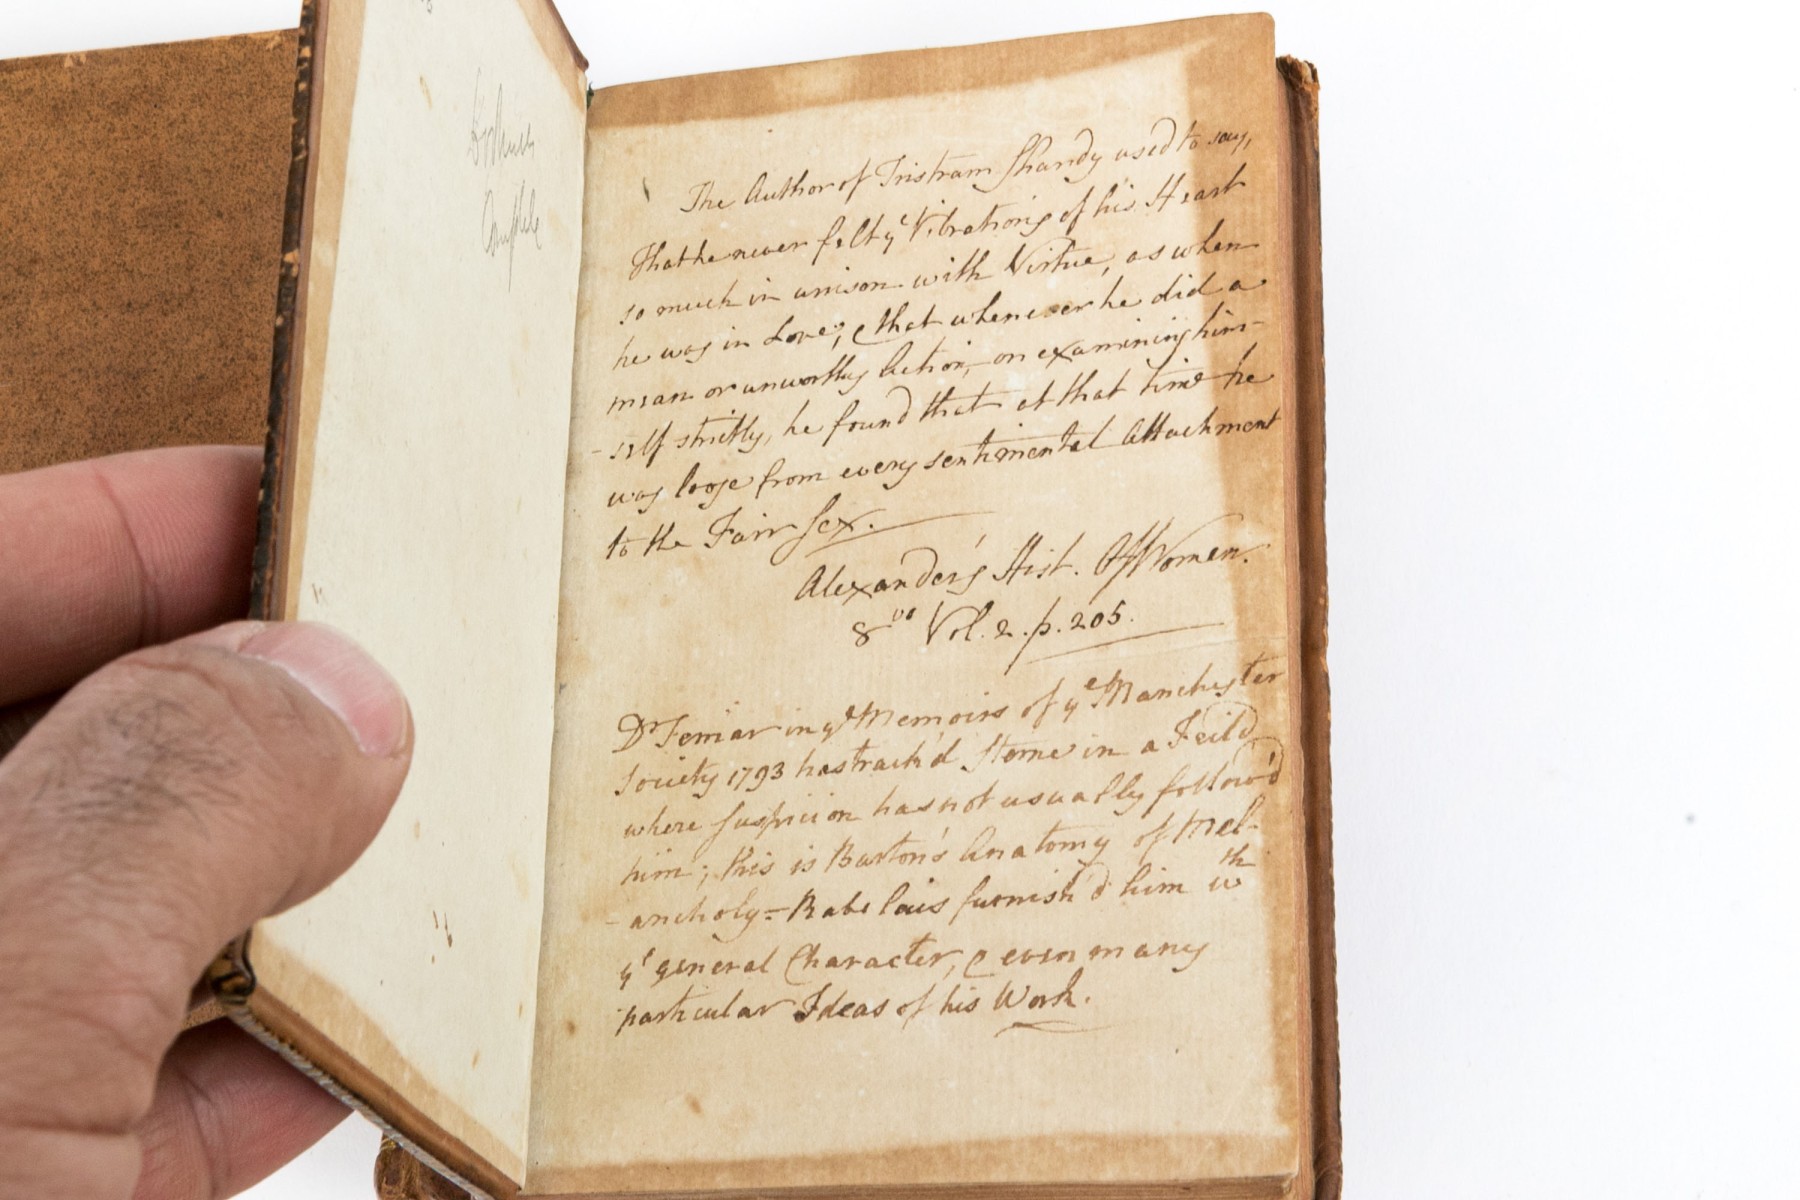 Complete
The Author of Tristram Shandy used to say,
That he never felt yᵉ Vibrations of his Heart
so much in unison with Virtue, as when
he was in Love; & that whenever he did a
mean or unworthy Action, on examining him-
-self strictly, he found that at that time he
was loose from every sentimental Attachment
to the Fair Sex.
Alexander's Hist. Of Women.
8ᵛᵒ Vol. 2. p. 205.
Dʳ Ferriar in yᵉ Memoirs of yᵉ Manchester
Society 1793 has track'd Sterne in a Feild
where suspicion has not usually follow'd
him; this is Burton's Anatomy of Mel-
-ancholy = Rabelais furnish'd him wᵗʰ
yᵉ general Character, & even many
particular Ideas of his Work.